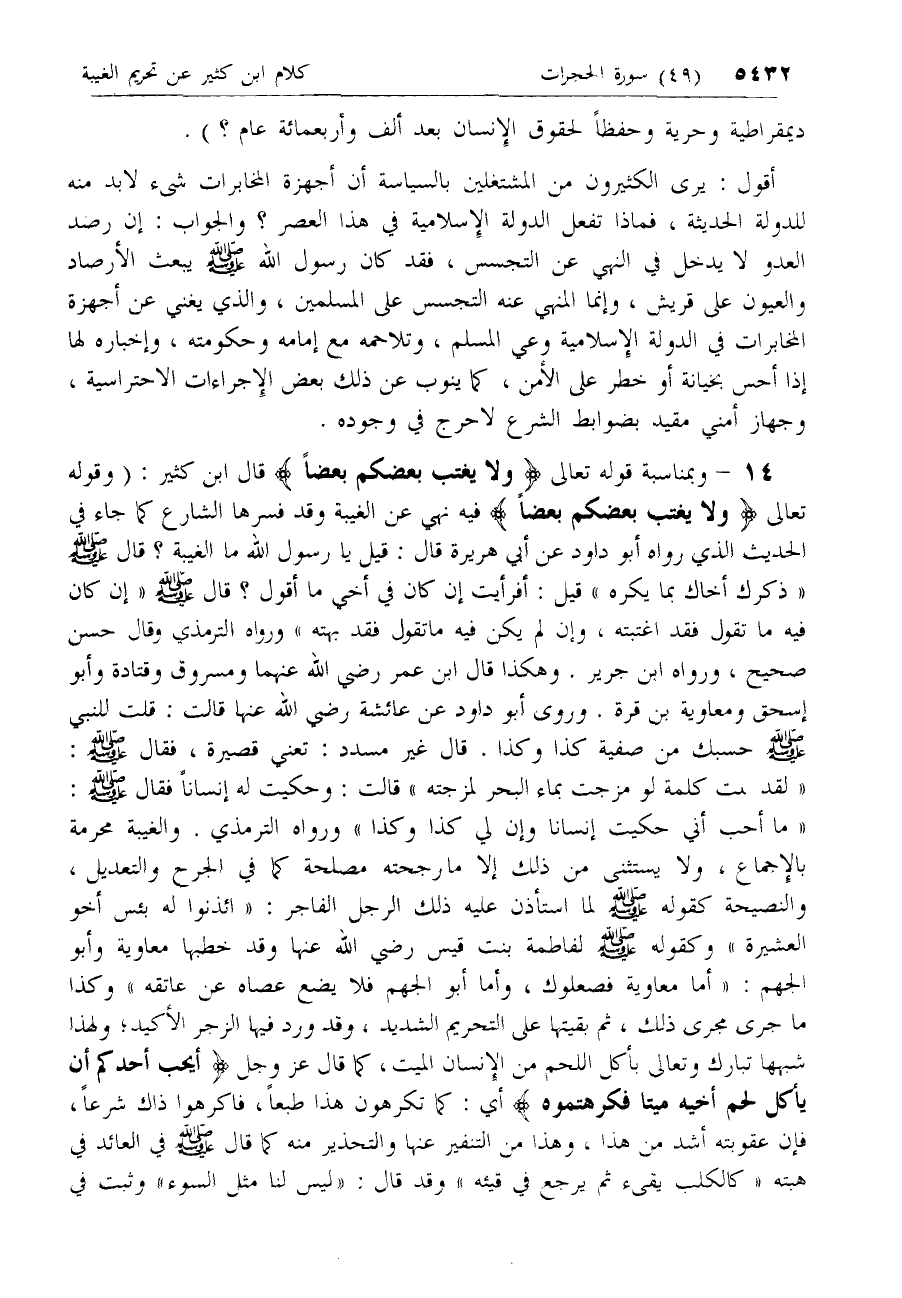 ٥٤٣٢ (٤٩) سورة الحجرات كلام ابن كثير عن تحريم الغيبة
ديمقراطية وحرية وحفظاً لحقوق الإنسان بعد ألف وأربعمائة عام ؟ ) .
أقول : يرى الكثيرون من المشتغلين بالسياسة أن أجهزة المخابرات شيء لابد منه
للدولة الحديثة ، فماذا تفعل الدولة الإسلامية في هذا العصر ؟ والجواب : إن رصد
العدو لا يدخل في النهي عن التجسس ، فقد كان رسول الله ﷺ يبعث الأرصاد
والعيون على قريش ، وإنما المنهي عنه التجسس على المسلمين ، والذي يغني عن أجهزة
المخابرات في الدولة الإسلامية وعي المسلم ، وتلاحمه مع إمامه وحكومته ، وإخباره لها
إذا أحس بخيانة أو خطر على الأمن ، كما ينوب عن ذلك بعض الإجراءات الاحتراسية ،
وجهاز أمني مقيد بضوابط الشرع لاحرج في وجوده .
١٤ - وبمناسبة قوله تعالى ﴿ ولا يغتب بعضكم بعضاً ﴾ قال ابن كثير : ( وقوله
تعالى ﴿ ولا يغتب بعضكم بعضاً ﴾ فيه نهي عن الغيبة وقد فسرها الشارع كما جاء في
الحديث الذي رواه أبو داود عن أبي هريرة قال : قيل يا رسول الله ما الغيبة ؟ قال ﷺ
« ذكرك أخاك بما يكره » قيل : أفرأيت إن كان في أخي ما أقول ؟ قال ﷺ « إن كان
فيه ما تقول فقد اغتبته ، وإن لم يكن فيه ماتقول فقد بهته » ورواه الترمذي وقال حسن
صحيح ، ورواه ابن جرير . وهكذا قال ابن عمر رضي الله عنهما ومسروق وقتادة وأبو
إسحق ومعاوية بن قرة . وروى أبو داود عن عائشة رضي الله عنها قالت : قلت للنبي
ﷺ حسبك من صفية كذا وكذا . قال غير مسدد : تعني قصيرة ، فقال ﷺ :
« لقد كلمة لو مزجت بماء البحر لمزجته » قالت : وحكيت له إنساناً فقال ﷺ :
« ما أحب أني حكيت إنسانا وإن لي كذا وكذا » ورواه الترمذي . والغيبة محرمة
بالإجماع ، ولا يستثنى من ذلك إلا مارجحته مصلحة كما في الجرح والتعديل ،
والنصيحة كقوله ﷺ لما استأذن عليه ذلك الرجل الفاجر : « ائذنوا له بئس أخو
العشيرة » وكقوله ﷺ لفاطمة بنت قيس رضي الله عنها وقد خطبها معاوية وأبو
الجهم : « أما معاوية فصعلوك ، وأما أبو الجهم فلا يضع عصاه عن عاتقه » وكذا
ما جرى مجرى ذلك ، ثم بقيتها على التحريم الشديد ، وقد ورد فيها الزجر الأكيد؛ ولهذا
شبهها تبارك وتعالى بأكل اللحم من الإنسان الميت، كما قال عز وجل ﴿ أيحب أحدكم أن
يأكل لحم أخيه ميتا فكرهتموه ﴾ أي : كما تكرهون هذا طبعاً، فاكرهوا ذاك شرعاً،
فإن عقوبته أشد من هذا ، وهذا من التنفير عنها والتحذير منه كما قال ﷺ في العائد في
هبته « كالكلب يقيء ثم يرجع في قيئه » وقد قال : «ليس لنا مثل السوء» وثبت في